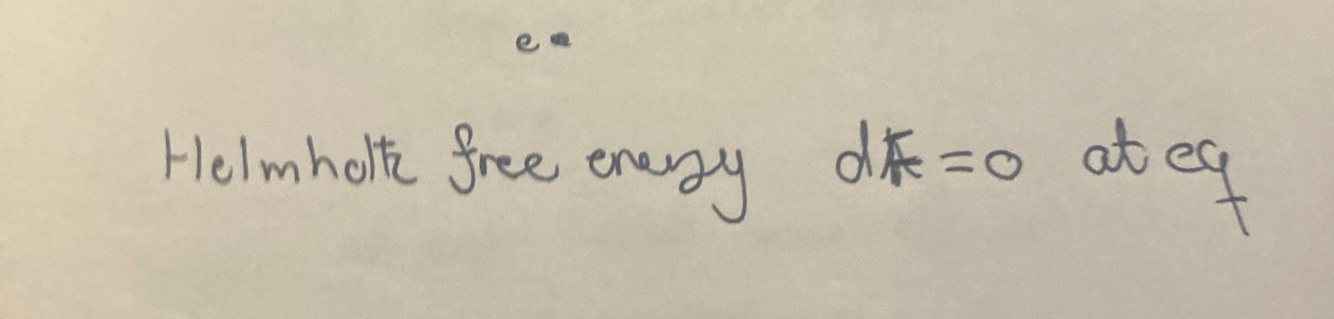 e
Helmholtz free energy dF = 0 at eq